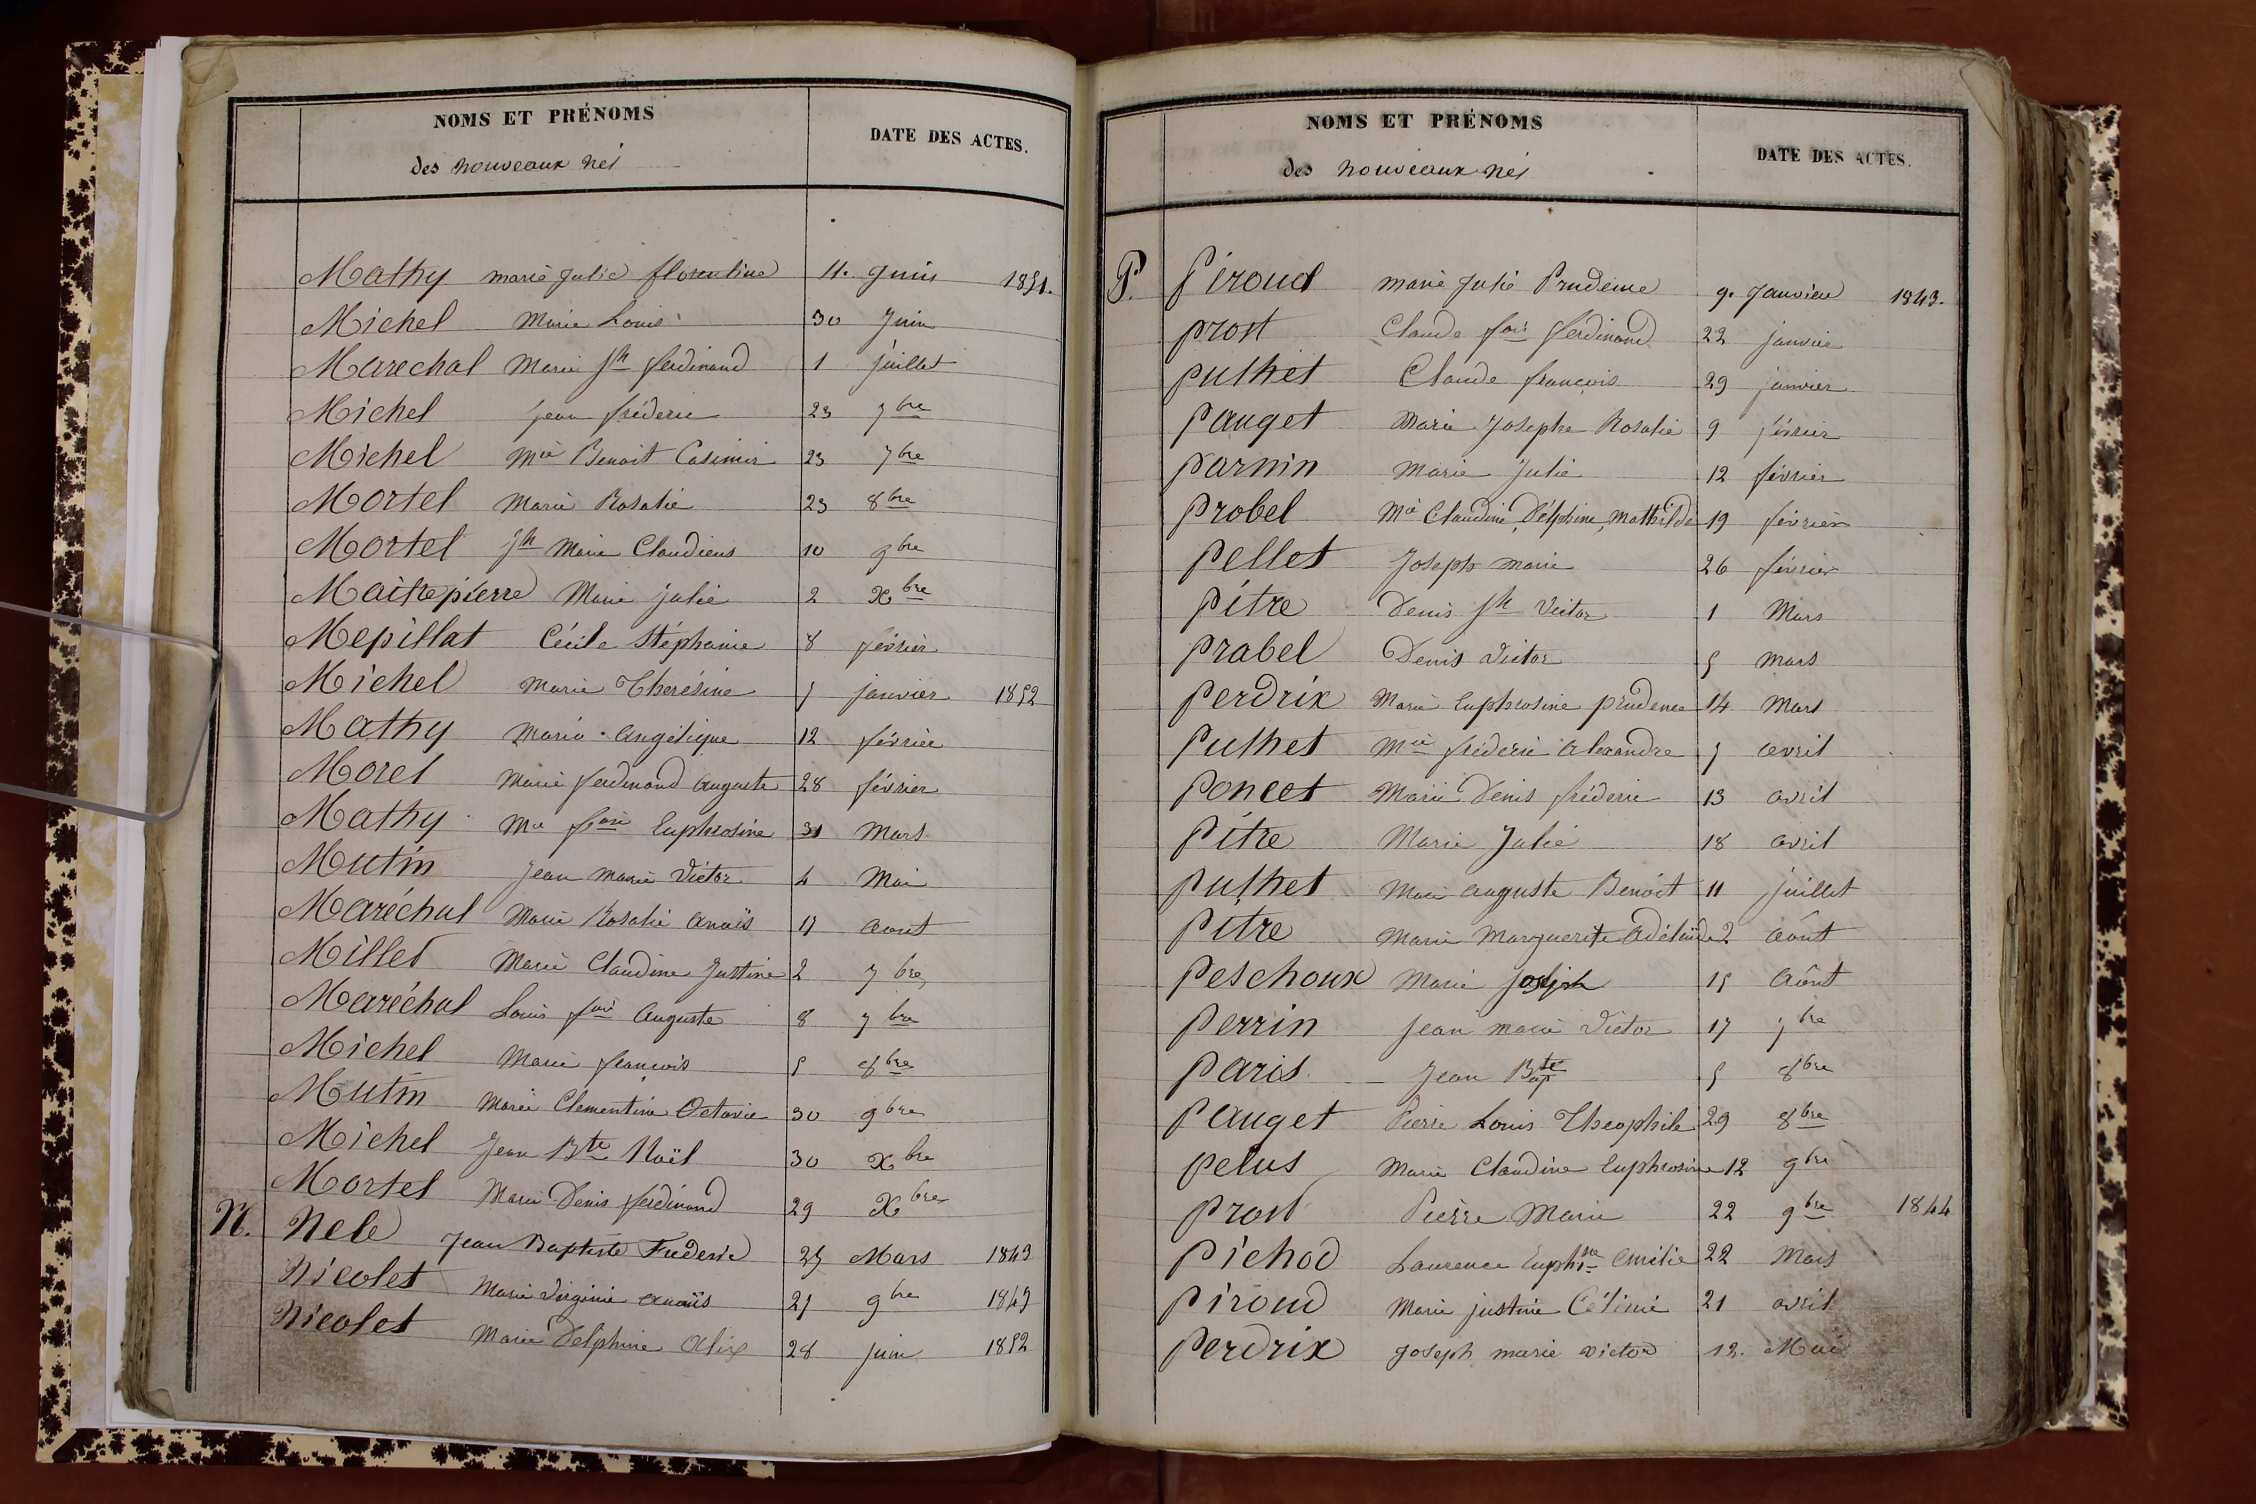 NOMS ET PRÉNOMS
des nouveaux nés
DATE DES ACTES.
Mathy marie Julie florentine 11. Juin 1851.
Michel Marie Louis 30 Juin
Marechal Marie Jh ferdinand 1 juillet
Michel Jean fréderic 23 7bre
Michel Mie Benoit Casimir 23 7bre
Mortel Marie Rosalie 23 8bre
Mortel Jh Marie Claudius 10 9bre
Maitrepierre Marie julie 2 Xbre
Mepillat Cécile Stéphanie 8 février
Michel Marie Therésine 5 janvier 1852
Mathy Maria Angélique 12 février
Morel Marie ferdinand Auguste 28 février
Mathy Mie fçoise Euphrosine 31 Mars
Mutin Jean Marie Victor 4 Mai
Maréchal Marie Rosalie Anaïs 17 Aout
Millet Marie Claudine Justine 2 7bre
Maréchal Louis fçois Auguste 8 7bre
Michel Marie françois 5 8bre
Mutin Marie Clementine Octavie 30 9bre
Michel Jean Bte Noël 30 Xbre
Mortel Marie Denis ferdinand 29 Xbre
N. Nele Jean Baptiste Frederic 25 Mars 1843
Nicolet Marie Virginie Anaïs 25 9bre 1843
Nicolet Marie Delphine Alix 28 juin 1852
NOMS ET PRÉNOMS
des nouveaux nés
DATE DES ACTES.
P. Piroud Marie Julie Prudence 9. Janvier 1843.
Prost Claude fois ferdinand 22 janvier
Puthet Claude françois 29 janvier
Pauget Marie Josephe Rosalie 9 février
Parnin Marie Julie 12 février
Probel Mie Claudine, Delphine, Mathilde 19 février
Pellet Joseph marie 26 février
Pitre Denis Jh Victor 1 Mars
Prabel Denis Victor 5 mars
Perdrix Marie Euphrosine prudence 14 Mars
Puthet Mie fréderic Alexandre 5 avril
Poncet Marie Denis fréderic 13 avril
Pitre Marie Julie 18 avril
Puthet Marie Auguste Benoit 11 juillet
Pitre Marie Marguerite Adélaïde 2 août
Peschoux Marie Joseph 15 Août
Perrin Jean marie Victor 17 7bre
Paris Jean Bapte 5 8bre
Pauget Pierre Louis Theophile 29 8bre
Pelus Marie Claudine Euphrosine 12 9bre
Prost Pierre Marie 22 9bre 1844
Pichod Laurence Euphsne Emélie 22 Mars
Piroud Marie justine Céline 21 avril
Perdrix Joseph marie victor 12. Mai